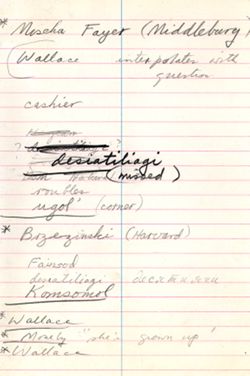 * Mischa Fayer (Middlebury)
Wallace interpolates with
question
cashier
desiatiliagi
(missed)
roubles
ugol' (corner)
* Brzezinski (Harvard)
Fainsod
desiatiliagi
Komsomol
* Wallace
* Mosely "she's grown up"
* Wallace